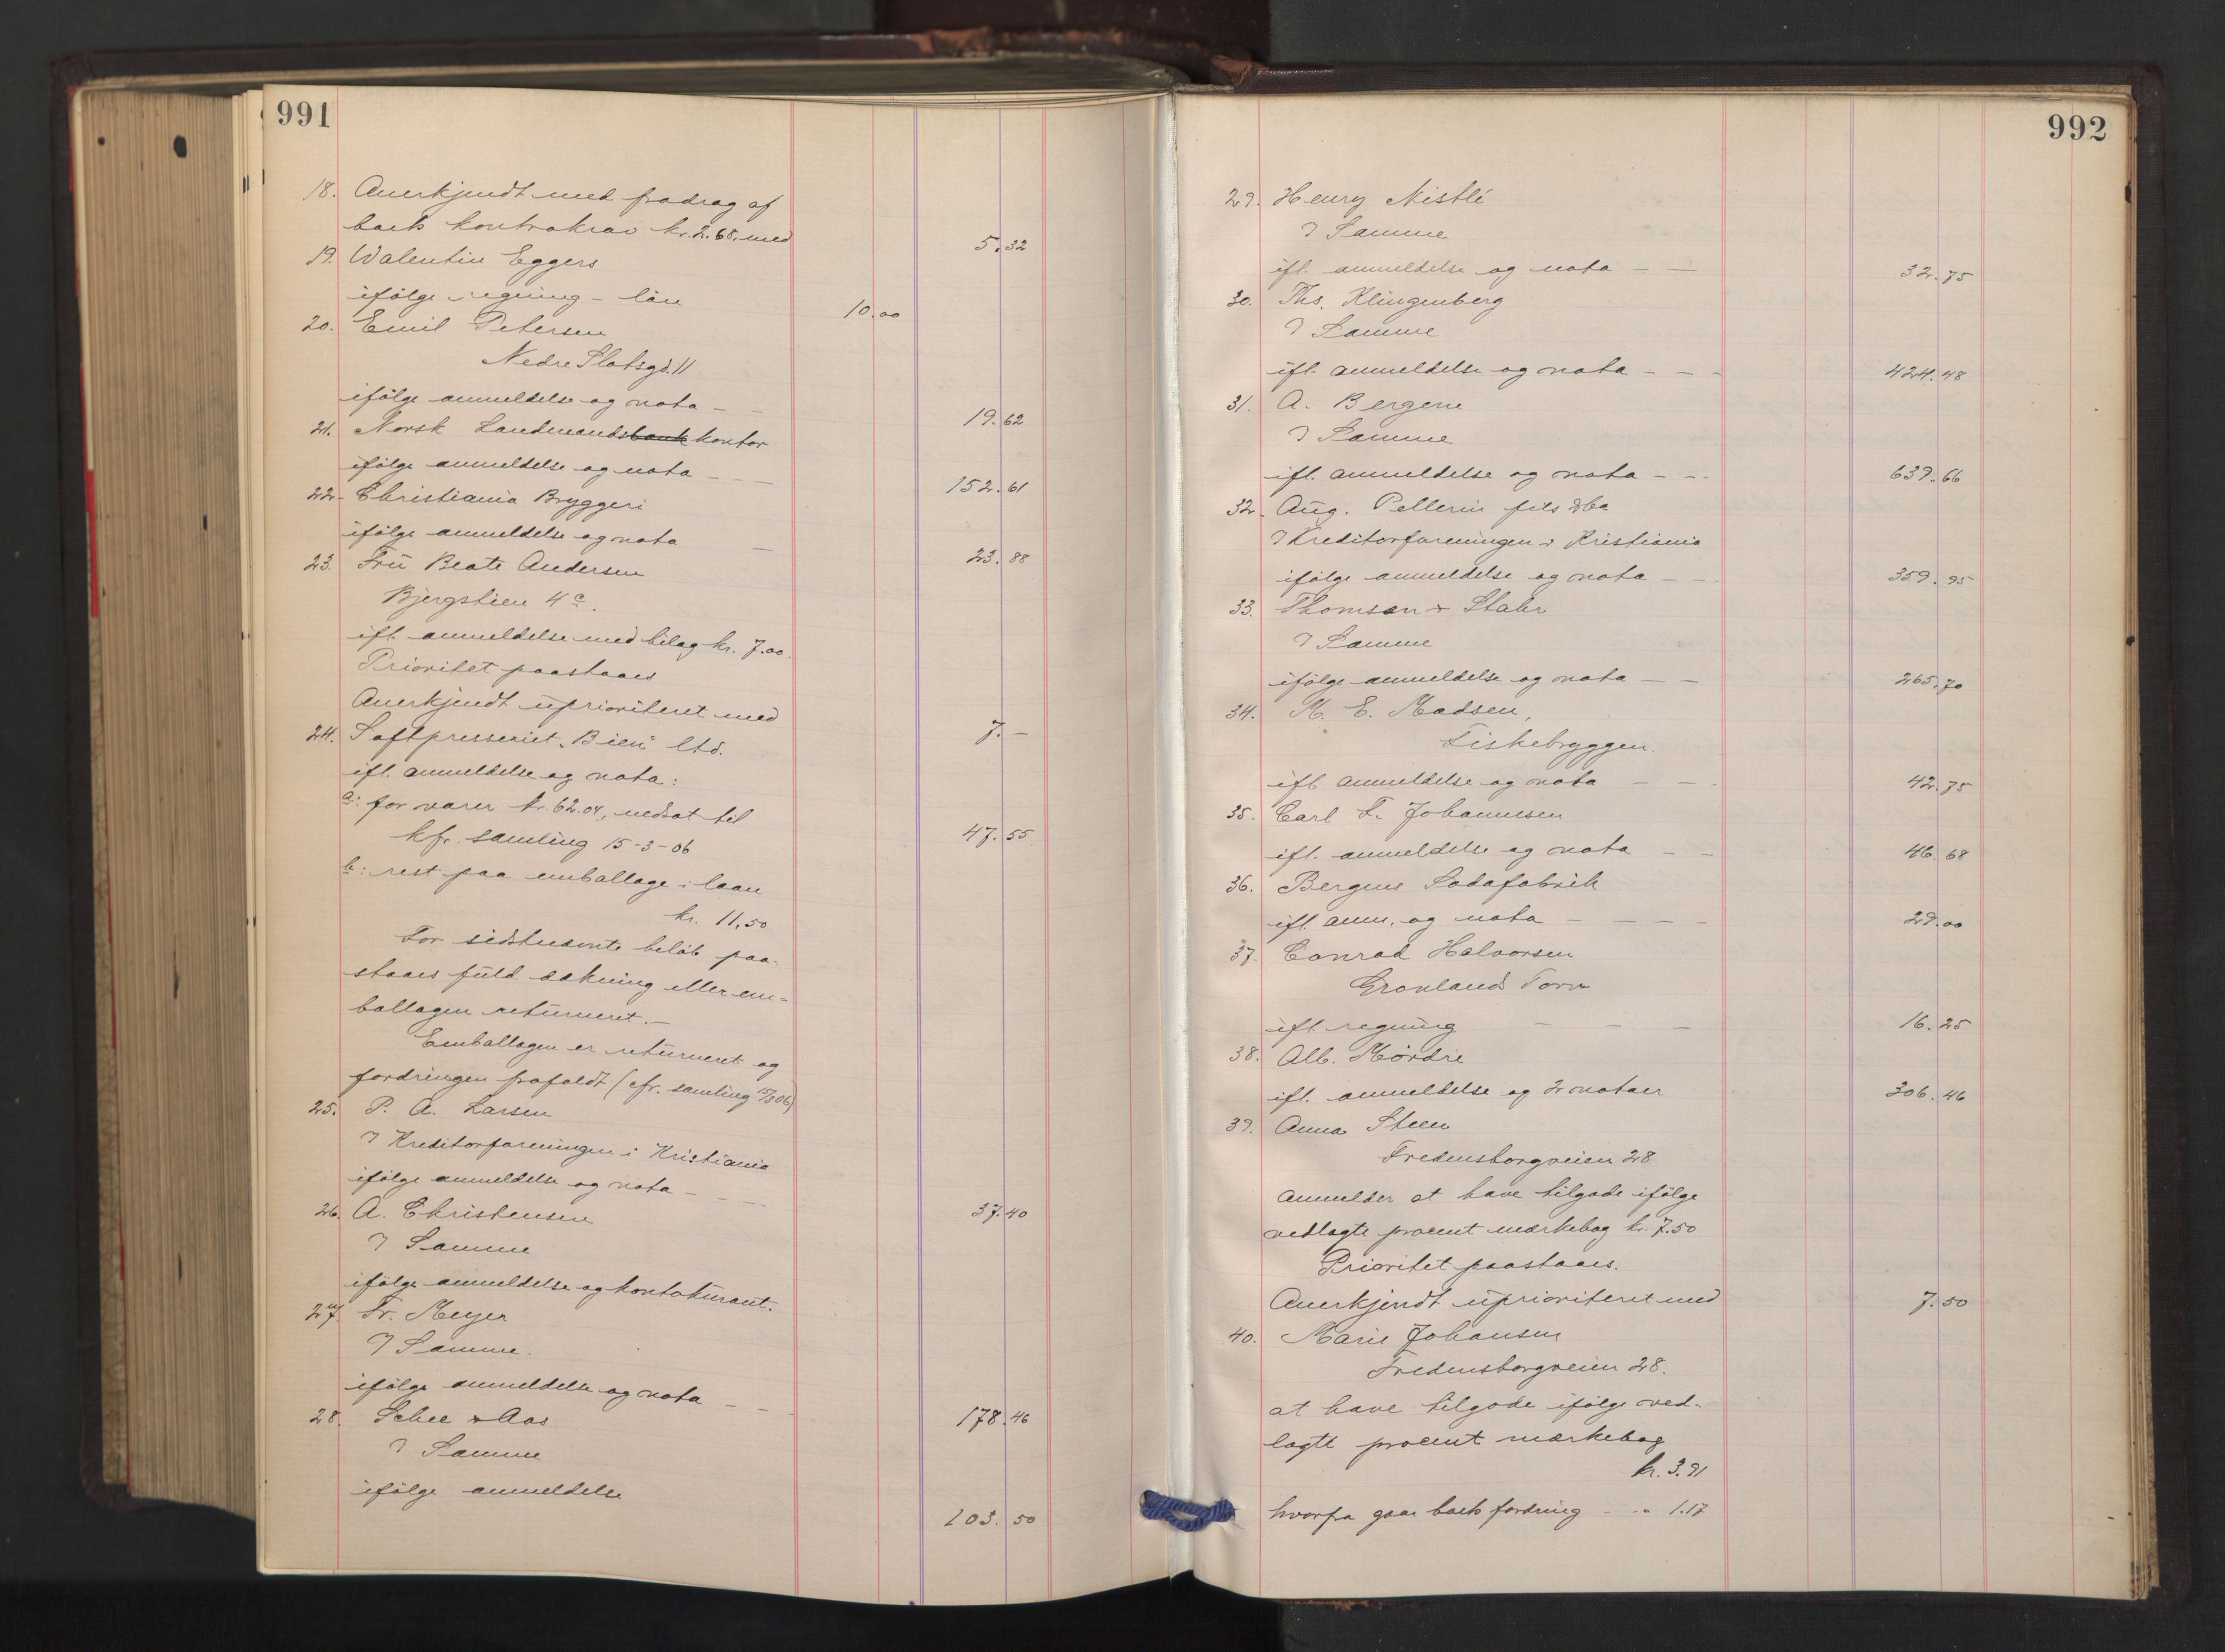 991
18. Anerkjendt med fradrag af
boets kontrakrav kr. 2.68, med 5.32
19. Valentin Eggers
ifølge regning - lån 10.00
20. Emil Petersen
Nedre Slotsgd. 11
ifølge anmeldelse og nota - - 19.62
21. Norsk Landmandsbank kontor
ifølge anmeldelse og nota - - - 152.61
22. Christiania Bryggeri
ifølge anmeldelse og nota - 23.88
23. Frü Beate Andersen
Bjergstien 4c.
ifl. anmeldelse med bilag kr. 7.00.
Prioritet paastaaes
Anerkjendt uprioriteret med 7.-
24. Saftpresseriet "Bien" ltd.
ifl. anmeldelse og nota:
a: for varer kr. 62.04, nedsat til 47.55
kfr. samling 15-3-06
b: rest paa emballage i laan
kr. 11,50
For sidstnævnte beløb paa-
staaes fuld dækning eller em-
ballagen returneret.-
Emballagen er returneret og
fordringen frafaldt (cfr. samling 15/3 06)
25. P. A. Larsen
Kreditorforeningen i Kristiania
ifølge anmeldelse og nota - - - 37.40
26. A. Christensen
Samme
ifølge anmeldelse og kontokurant.
27. Fr. Meyer
Samme.
ifølge anmeldelse og nota - - 178.46
28. Schee & Aas
Samme
ifølge anmeldelse 103.50
992
29. Henry Nistlé
Samme
ifl. anmeldelse og nota - - 32.75
30. Ths. Klingenberg
Samme
ifl. anmeldelse og nota - - - 424.48
31. A. Bergene
Samme
ifl. anmeldelse og nota - - 639.66
32. Aug. Pellerin fils & Co
Kreditorforeningen i Kristiania
ifølge anmeldelse og nota - - 359.95
33. Thomson & Stahr
Samme
ifølge anmeldelse og nota - - 265.70
34. M. E. Madsen,
Fiskebryggen.
ifl. anmeldelse og nota - - - 42.75
35. Carl F. Johannesen
ifl. anmeldelse og nota - - 46.68
36. Bergens Sodafabrik
ifl. anm. og nota - - - - 29.00
37. Conrad Halvorsen
Grønlands Torv
ifl. regning - - - 16.25
38. Alb. Mørdre
ifl. anmeldelse og 2 notaer 306.46
39. Anna Steen
Fredensborgveien 28
anmelder at have tilgode ifølge
vedlagte procent mærkebog kr. 7.50
Prioritet paastaaes.
Anerkjendt uprioriteret med 7.50
40. Marie Johansen
Fredensborgveien 28.
at have tilgode ifølge ved-
lagte procent mærkebog
kr. 3.91
hvorfra gaar boets fordring - " 1.17